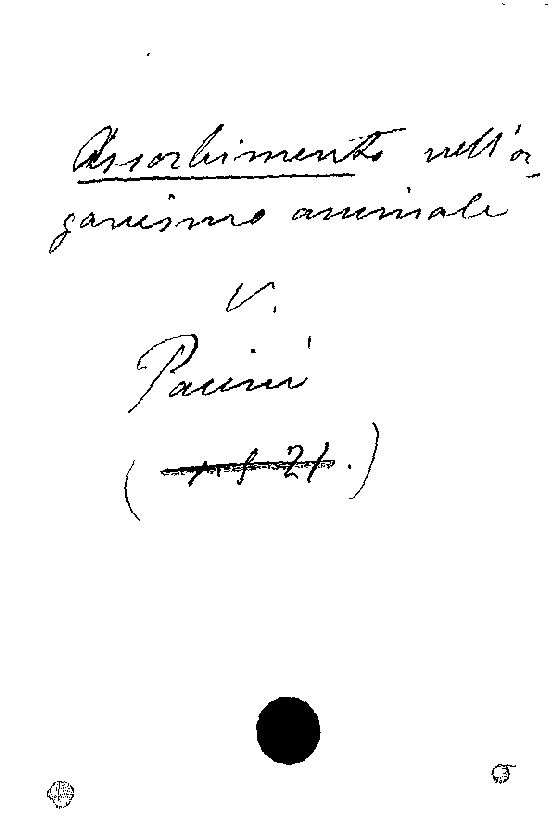 Assorbimento nell'or-
ganismo animale
V.
Pacini
( 21.)